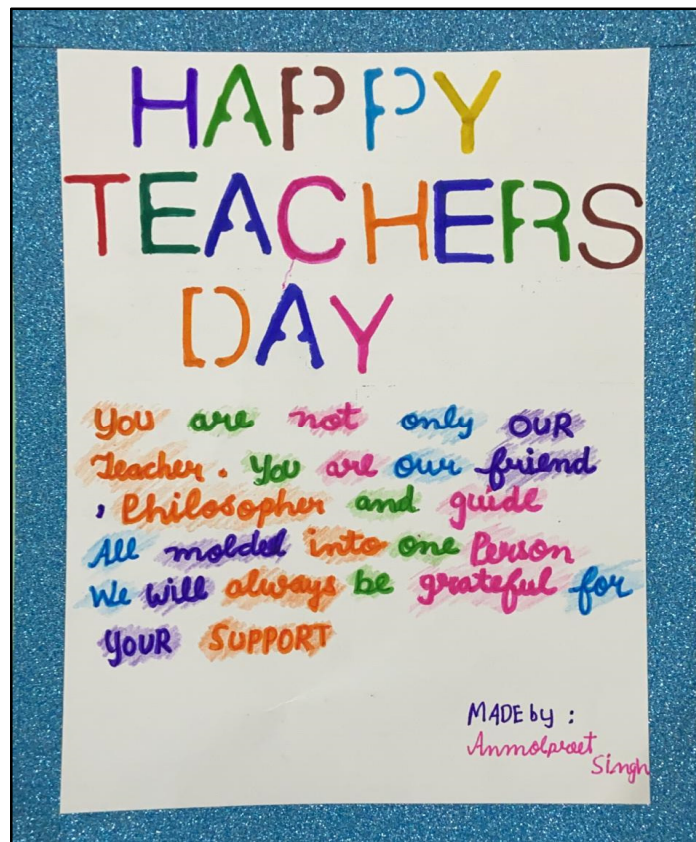 HAPPY
TEACHERS
DAY
You are not only OUR
Teacher. You are our friend
, Philosopher and guide
All molded into one Person
We will always be grateful for
YouR SUPPORT
MADE by :
Anmolpreet
Singh